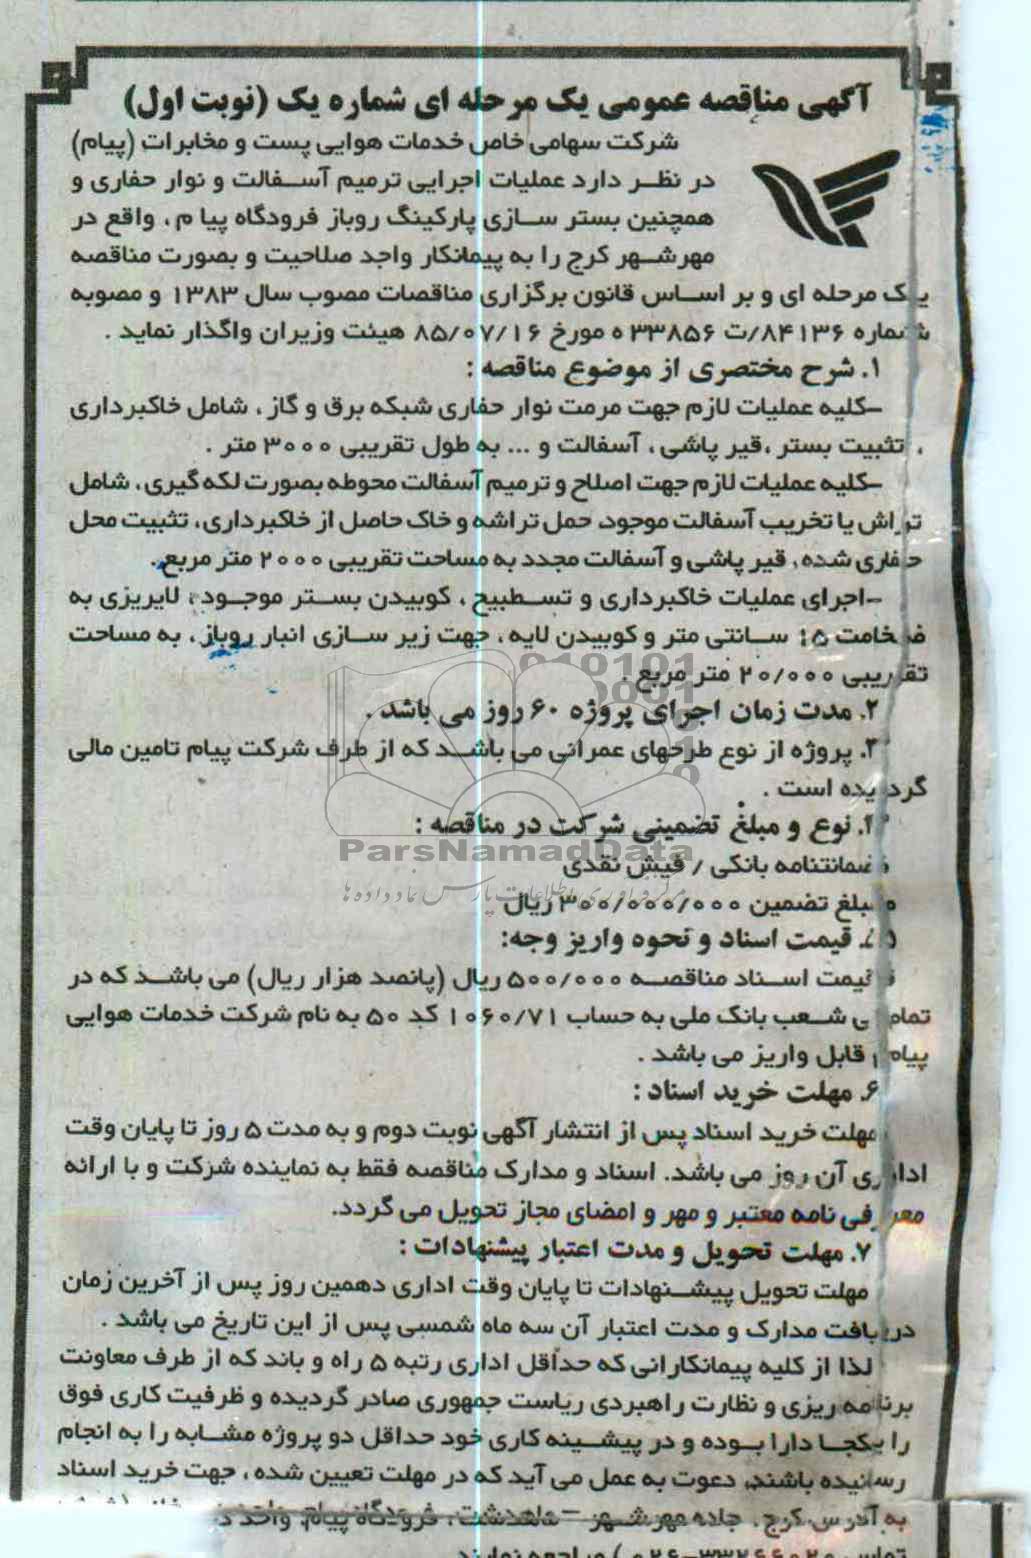 آگهی مناقصه عمومی یک مرحله ای شماره یک (نوبت اول)
شرکت سهامی خاص خدمات هوایی پست و مخابرات (پیام)
در نظر دارد عملیات اجرایی ترمیم آسفالت و نوار حفاری و
همچنین بستر سازی پارکینگ روباز فرودگاه پیا م ، واقع در
مهرشهر کرج را به پیمانکار واجد صلاحیت و بصورت مناقصه
یک مرحله ای و بر اساس قانون برگزاری مناقصات مصوب سال ۱۳۸۳ و مصوبه
شماره ۸۴۱۳۶/ت ۳۳۸۵۶ ه مورخ ۸۵/۰۷/۱۶ هیئت وزیران واگذار نماید .
۱. شرح مختصری از موضوع مناقصه :
-کلیه عملیات لازم جهت مرمت نوار حفاری شبکه برق و گاز ، شامل خاکبرداری
، تثبیت بستر ،قیر پاشی ، آسفالت و ... به طول تقریبی ۳۰۰۰ متر .
-کلیه عملیات لازم جهت اصلاح و ترمیم آسفالت محوطه بصورت لکه گیری ، شامل
تراش یا تخریب آسفالت موجود، حمل تراشه و خاک حاصل از خاکبرداری ، تثبیت محل
حفاری شده ، قیر پاشی و آسفالت مجدد به مساحت تقریبی ۲۰۰۰ متر مربع .
-اجرای عملیات خاکبرداری و تسطیح ، کوبیدن بستر موجود ، لایریزی به
ضخامت ۱۵ سانتی متر و کوبیدن لایه ، جهت زیر سازی انبار روباز ، به مساحت
تقریبی ۲۰/۰۰۰ متر مربع .
۲. مدت زمان اجرای پروژه ۶۰ روز می باشد .
۳. پروژه از نوع طرحهای عمرانی می باشد که از طرف شرکت پیام تامین مالی
گردیده است .
۴. نوع و مبلغ تضمینی شرکت در مناقصه :
ضمانتنامه بانکی / فیش نقدی
ParsNamadData
مرکز فرآوری اطلاعات پارس نماد داده ها
مبلغ تضمین ۳۰۰/۰۰۰/۰۰۰ ریال
۵. قیمت اسناد و نحوه واریز وجه:
قیمت اسناد مناقصه ۵۰۰/۰۰۰ ریال (پانصد هزار ریال) می باشد که در
تمامی شعب بانک ملی به حساب ۱۰۶۰/۷۱ کد ۵۰ به نام شرکت خدمات هوایی
پیام قابل واریز می باشد .
۶. مهلت خرید اسناد :
مهلت خرید اسناد پس از انتشار آگهی نوبت دوم و به مدت ۵ روز تا پایان وقت
اداری آن روز می باشد. اسناد و مدارک مناقصه فقط به نماینده شرکت و با ارائه
معرفی نامه معتبر و مهر و امضای مجاز تحویل می گردد.
۷. مهلت تحویل و مدت اعتبار پیشنهادات :
مهلت تحویل پیشنهادات تا پایان وقت اداری دهمین روز پس از آخرین زمان
دریافت مدارک و مدت اعتبار آن سه ماه شمسی پس از این تاریخ می باشد .
لذا از کلیه پیمانکارانی که حداقل اداری رتبه ۵ راه و باند که از طرف معاونت
برنامه ریزی و نظارت راهبردی ریاست جمهوری صادر گردیده و ظرفیت کاری فوق
را یکجا دارا بوده و در پیشینه کاری خود حداقل دو پروژه مشابه را به انجام
رسانیده باشند، دعوت به عمل می آید که در مهلت تعیین شده ، جهت خرید اسناد
به آدرس کرج ، جاده مهرشهر – ماهدشت ، فرودگاه پیام، واحد